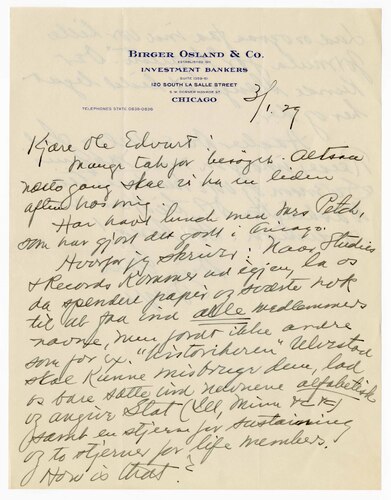 BIRGER OSLAND & CO.
ESTABLISHED 1911
INVESTMENT BANKERS
120 SOUTH LA SALLE STREET
S.W. CORNER MONROE ST.
CHICAGO
TELEPHONES STATE 0835-0836
3/1.29
Kjære Ole Edvart!
Mange tak for besøget. Altsaa
næste gang skal vi ha en liden
aften hos mig.
Har havt lunch med Mrs Petch,
som har gjort det godt i Chicago.
Hvorfor jeg skriver: Naar Studies
& Records kommer ud igjen, la os
da spendere papir og sværte nok
til at faa ind alle medlemmers
navne, men forat ikke andre
som for ex. "historikeren" Ulvestad
skal kunne misbruge dem, lad
os bare sætte ind navnene alfabetisk
og angive Stat (Ill, Minn
samt en stjerne for sustaining
og to stjerner for life members.
How is that?